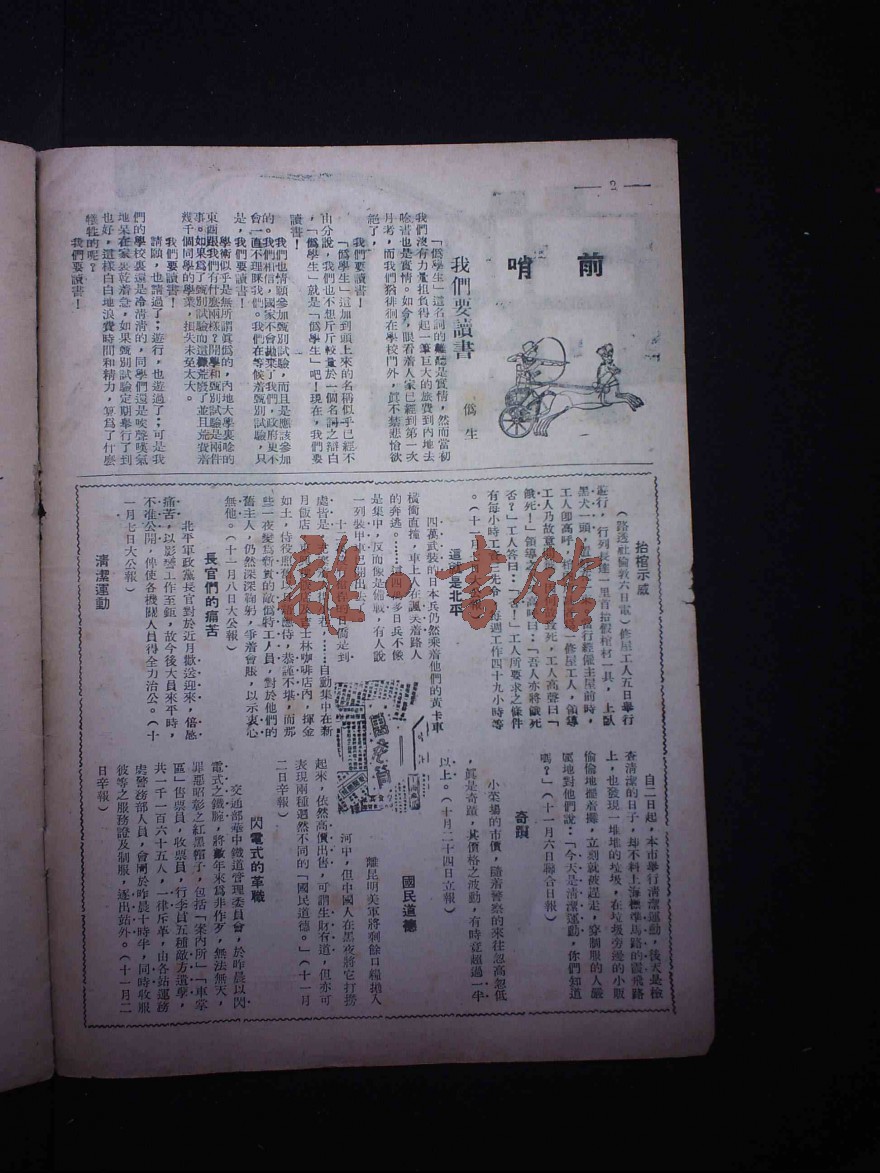 — 2 —
前哨
我們要讀書
僞生
「僞學生」這名詞的難聽是實情，然而當初
我們沒有力量担負得起一筆巨大的旅費到內地去
唸書也是實情。如今，眼看着人家已經到第一次
月考，而我們猶徘徊在學校門外，眞不禁悲愴欲
絕了。
我們要讀書！
「僞學生」這加到頭上來的名稱似乎已經不
由分說，我們也不想斤斤較量於一個名詞之辯白
，「僞學生」就是「僞學生」吧！現在，我們要
讀書！
我們也情願參加甄別試驗，而且是應該參加
的。我們相信，國家不會拋棄了我們，政府更不
會一直不理睬我們。我們在等候着甄別試驗，只
是，我們要讀書！
學術似乎是無所謂眞僞的，內地大學裏唸的
東西跟我們有什麼兩樣？開學和甄別試驗是兩件
事。如果爲了甄別試驗而這樣荒廢了並且荒廢着
幾千個同學的學業，損失未免太大。
我們要讀書！
請願，也請過了；遊行，也遊過了；可是我
們的學校裏還是冷淸淸的，同學們還是唉聲嘆氣
地呆在家裏乾着急，如果甄別試驗定期舉行了到
也好，這樣白白地浪費時間和精力，算爲了什麼
犧牲的呢？
我們要讀書！
抬棺示威
（路透社倫敦六日電）修屋工人五日舉行
遊行，行列長達一里首抬假棺材一具，上臥
黑犬一頭，
行經僱主屋前時，
工人卽高呼，
一修屋工人，領導
工人乃故意
致死，工人高聲曰「
餓死！」領導
高呼曰：「吾人亦將餓死
否？」工人答曰：「否！」工人所要求之條件
有每小時工資
先令，每週工作四十九小時等
。（十一月
大公報）
這就是北平
四萬武裝的日本兵仍然乘着他們的黃卡車
橫衝直撞，車上人在諷笑着路人
的奔逃。……
四
多日兵不像
是集中，反而像是備戰，有人說
一列裝甲車已開出去
日僑是到
處皆是
……自動集中在新
月飯店，
士林咖啡店內，揮金
如土，侍役照
應侍，恭謹不堪，而那
些一夜變爲新貴的敵僞特工人員，對於他們的
舊主人，仍然深深鞠躬，爭着會賬，以示衷心
無他。（十一月八日大公報）
長官們的痛苦
北平軍政黨長官對於近月歡送迎來，倍感
痛苦，以影響工作至鉅，故今後大員來平時，
不准公開，俾使各機關人員得全力治公。（十
一月七日大公報）
淸潔運動
自二日起，本市舉行淸潔運動，後天是檢
查淸潔的日子，却不料上海標準馬路的霞飛路
上，也發現一堆堆的垃圾，在垃圾旁邊的小販
偷偷地擺着攤，立刻就被趕走，穿制服的人嚴
厲地對他們說：「今天是淸潔運動，你們知道
嗎？」（十一月六日聯合日報）
奇蹟
小菜場的市價，隨着警察的來往忽高忽低
，眞是奇蹟，其價格之波動，有時竟超過一半
以上。（十月二十四日立報）
國民道德
離昆明美軍將剩餘口糧拋入
河中，但中國人在黑夜將它打撈
起來，依然高價出售，可謂生財有道，但亦可
表現兩種迥然不同的「國民道德。」（十一月
二日辛報）
閃電式的革職
交通部華中鐵道管理委員會，於昨晨以閃
電式之鐵腕，將歉年來爲非作歹，無法無天，
罪惡昭彰之紅黑帽子，包括「案內所」「車掌
區」售票員，收票員，行李員五種敵方遺孽，
共一千一百六十五人，一律斥革，由各站運務
處警務部人員，會同於昨晨十時半，同時收服
彼等之服務證及制服，逐出站外。（十一月二
日辛報）
雜·書館